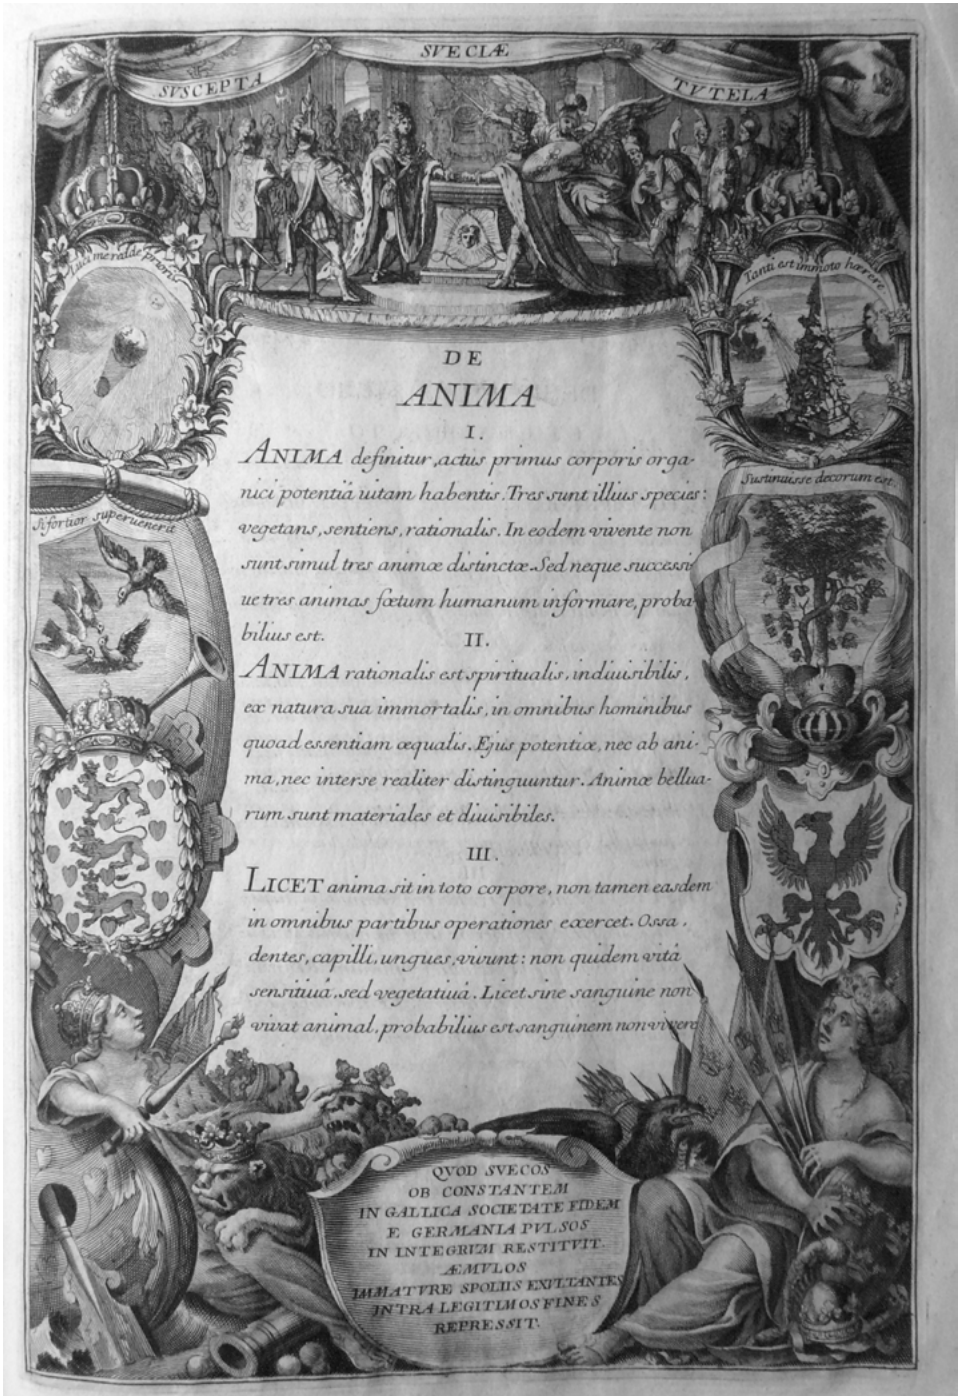 SVSCEPTA
SVECIÆ
TVTELA
Tanti est immoto hærere
Sustinuisse decorum est.
Si fortior superuenerit
DE
ANIMA
I.
ANIMA definitur, actus primus corporis orga-
nici potentiâ uitam habentis. Tres sunt illius species:
vegetans, sentiens, rationalis. In eodem vivente non
sunt simul tres animæ distinctæ. Sed neque successi
ue tres animas fœtum humanum informare, proba-
bilius est.
II.
ANIMA rationalis est spiritualis, indiuisibilis,
ex natura sua immortalis, in omnibus hominibus
quoad essentiam æqualis. Ejus potentiæ, nec ab ani-
ma, nec inter se realiter distinguuntur. Animæ bellua-
rum sunt materiales et diuisibiles.
III.
LICET anima sit in toto corpore, non tamen easdem
in omnibus partibus operationes exercet. Ossa,
dentes, capilli, ungues, vivunt: non quidem vitâ
sensitiuâ, sed vegetatiuâ. Licet sine sanguine non
vivat animal, probabilius est sanguinem non vivere
QVOD SVECOS
OB CONSTANTEM
IN GALLICA SOCIETATE FIDEM
E GERMANIA PVLSOS
IN INTEGRVM RESTITVIT.
ÆMVLOS
IMMATVRE SPOLIIS EXVLTANTES
INTRA LEGITIMOS FINES
REPRESSIT.